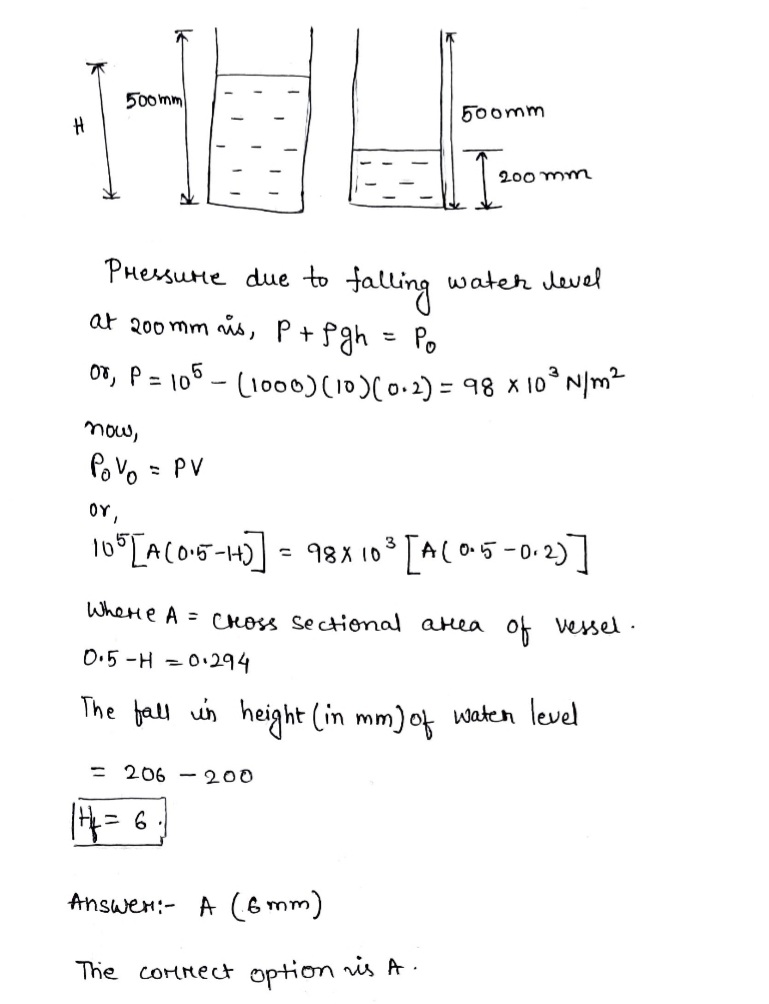 H
500mm
500mm
200mm
Pressure due to falling water level
at 200mm is, P + ρgh = P₀
or, P = 10⁵ - (1000)(10)(0.2) = 98 × 10³ N/m²
now,
P₀V₀ = PV
or,
10⁵[A(0.5-H)] = 98 × 10³ [A(0.5-0.2)]
Where A = cross sectional area of vessel.
0.5 - H = 0.294
The fall in height (in mm) of water level
= 206 - 200
Hf = 6.
Answer:- A (6mm)
The correct option is A.